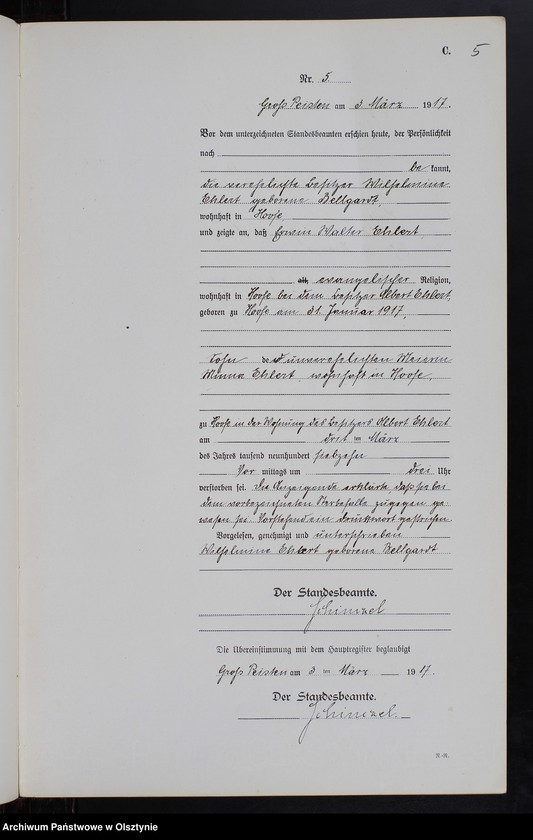 C. 5
Nr. 5.
Groß Peisten am 3 März 1917.
Vor dem unterzeichneten Standesbeamten erschien heute, der Persönlichkeit
nach
be kannt,
die verehelichte Besitzer Wilhelmine
Ehlert geborene Bellgardt,
wohnhaft in Hoofe,
und zeigte an, daß Erwin Walter Ehlert,
alt, evangelischer Religion,
wohnhaft in Hoofe bei dem Besitzer Albert Ehlert,
geboren zu Hoofe am 31. Januar 1917,
Sohn der unverehelichten
Minna Ehlert, wohnhaft in Hoofe,
zu Hoofe in der Wohnung des Besitzers Albert Ehlert
am dritten März
des Jahres tausend neunhundert siebzehn
Vor mittags um drei Uhr
verstorben sei. Die Anzeigende erklärte, daß sie bei
dem vorbezeichneten Sterbefalle zugegen ge-
wesen sei. Vorstehend ein Druckwort gestrichen.
Vorgelesen, genehmigt und unterschrieben
Wilhelmine Ehlert geborene Bellgardt
Der Standesbeamte.
Schimzel
Die Übereinstimmung mit dem Hauptregister beglaubigt
Groß Peisten am 3 ten März 1917.
Der Standesbeamte.
Schimzel.
Archiwum Państwowe w Olsztynie